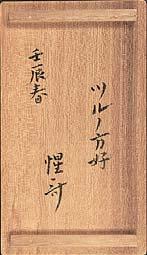 ツルノ方好
壬辰春
惺斎